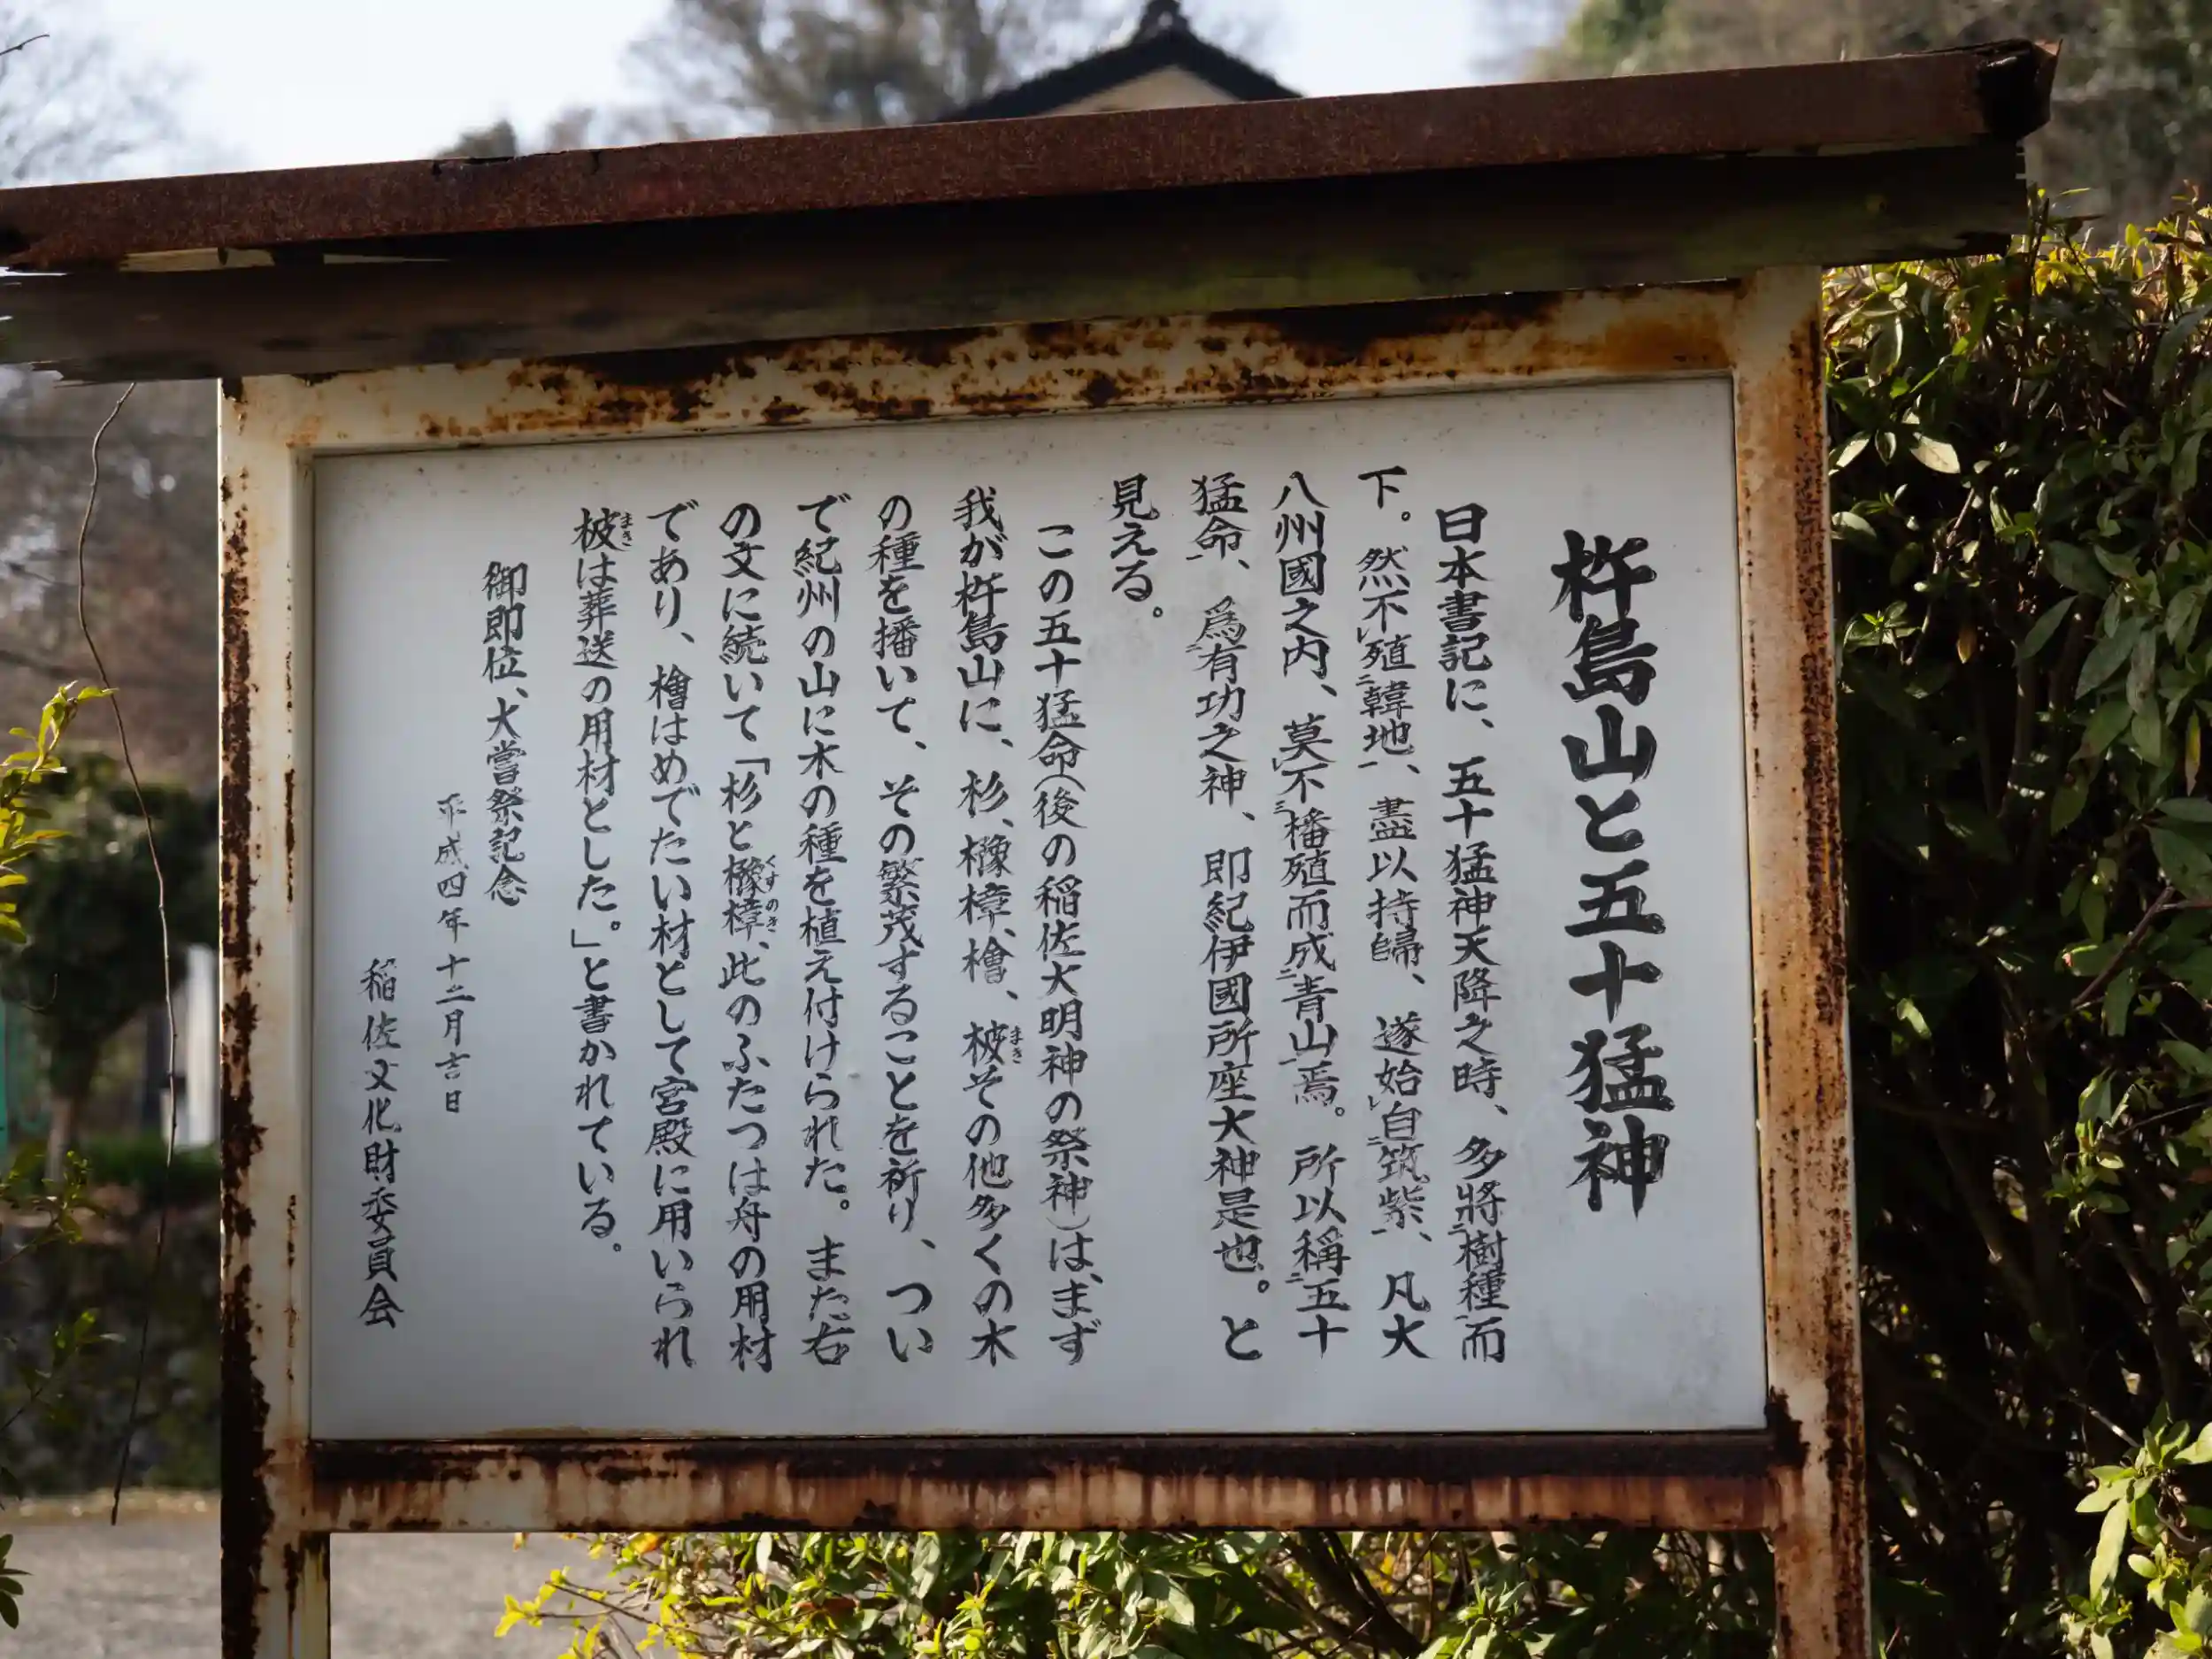 杵島山と五十猛神
日本書記に、五十猛神天降之時、多將樹種而
下。然不殖韓地、盡以持歸、遂始自筑紫、凡大
八州國之内、莫不播殖而成青山焉。所以稱五十
猛命、爲有功之神、即紀伊國所座大神是也。と
見える。
この五十猛命(後の稲佐大明神の祭神)は、まず
我が杵島山に、杉、櫲樟、檜、柀その他多くの木
の種を播いて、その繁茂することを祈り、つい
で紀州の山に木の種を植え付けられた。また右
の文に続いて「杉と櫲樟、此のふたつは舟の用材
であり、檜はめでたい材として宮殿に用いられ
柀は葬送の用材とした。」と書かれている。
御即位、大嘗祭記念
平成四年十二月吉日
稲佐文化財委員会